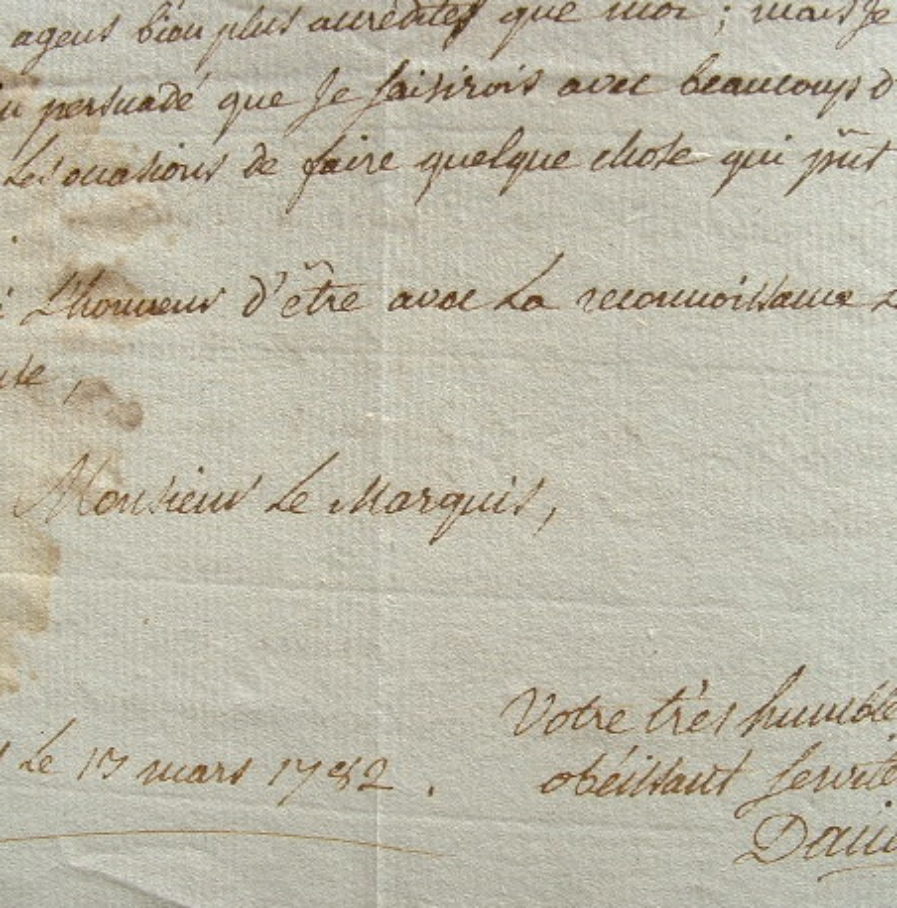 agens bien plus accrédités que moi ; mais Je
persuadé que Je saisirois avec beaucoup d'
Les occasions de faire quelque chose qui pût
L'honneur d'être avec La reconnoissance

Monsieur Le Marquis,
Votre très humble
Le 17 mars 1782. obéissant servite